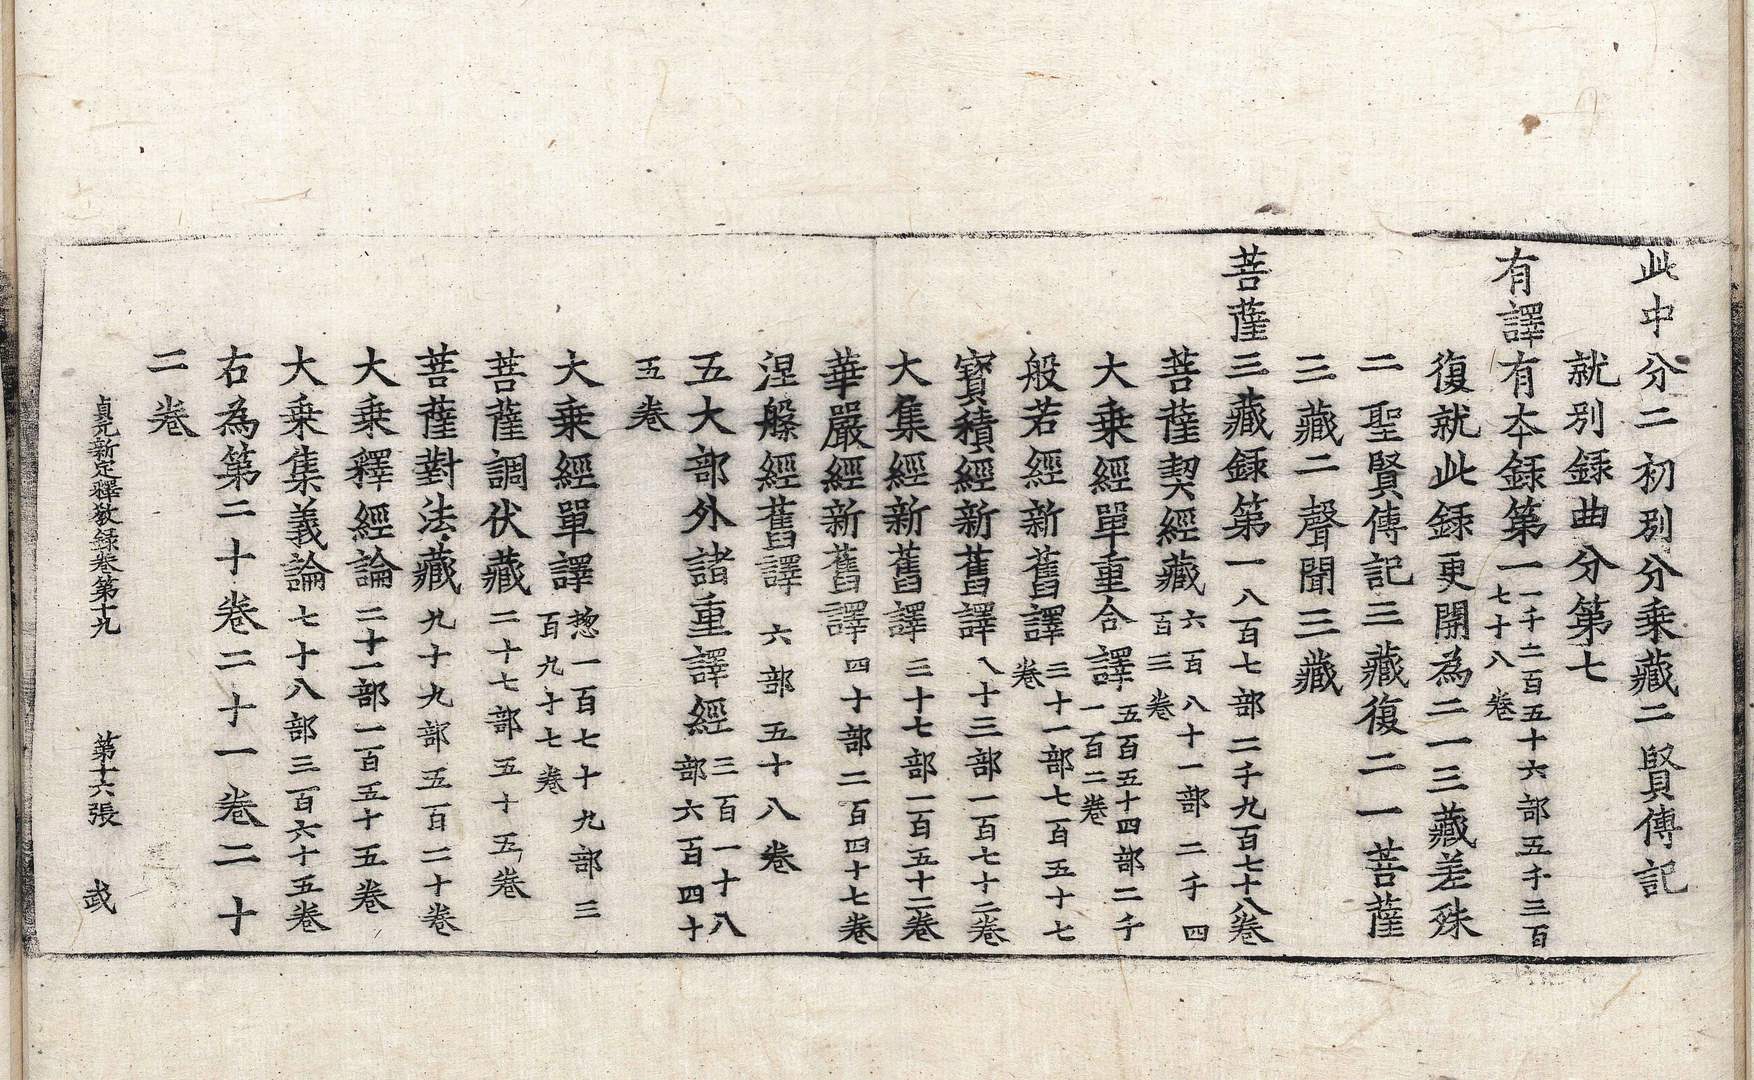 此中分二初別分乘藏二賢傳記
就別録曲分第七
有譯有本録第一一千二百五十六部五千三百七十八卷
復就此録更開為二一三藏差殊
二聖賢傳記三藏復二一菩薩
三藏二聲聞三藏
菩薩三藏録第一八百七部二千九百七十八卷
菩薩契經藏六百八十一部二千四百三卷
大乘經單重合譯五百五十四部二千一百二卷
般若經新舊譯三十一部七百五十七卷
寶積經新舊譯八十三部一百七十二卷
大集經新舊譯三十七部一百五十二卷
華嚴經新舊譯四十部二百四十七卷
涅槃經舊譯六部五十八卷
五大部外諸重譯經三百一十八部六百四十
五卷
大乘經單譯揔一百七十九部三百九十七卷
菩薩調伏藏二十七部五十五卷
菩薩對法藏九十九部五百二十卷
大乘釋經論二十一部一百五十五卷
大乘集義論七十八部三百六十五卷
右為第二十卷二十一卷二十
二卷
貞元新定釋教録卷第十九 第十六張 武